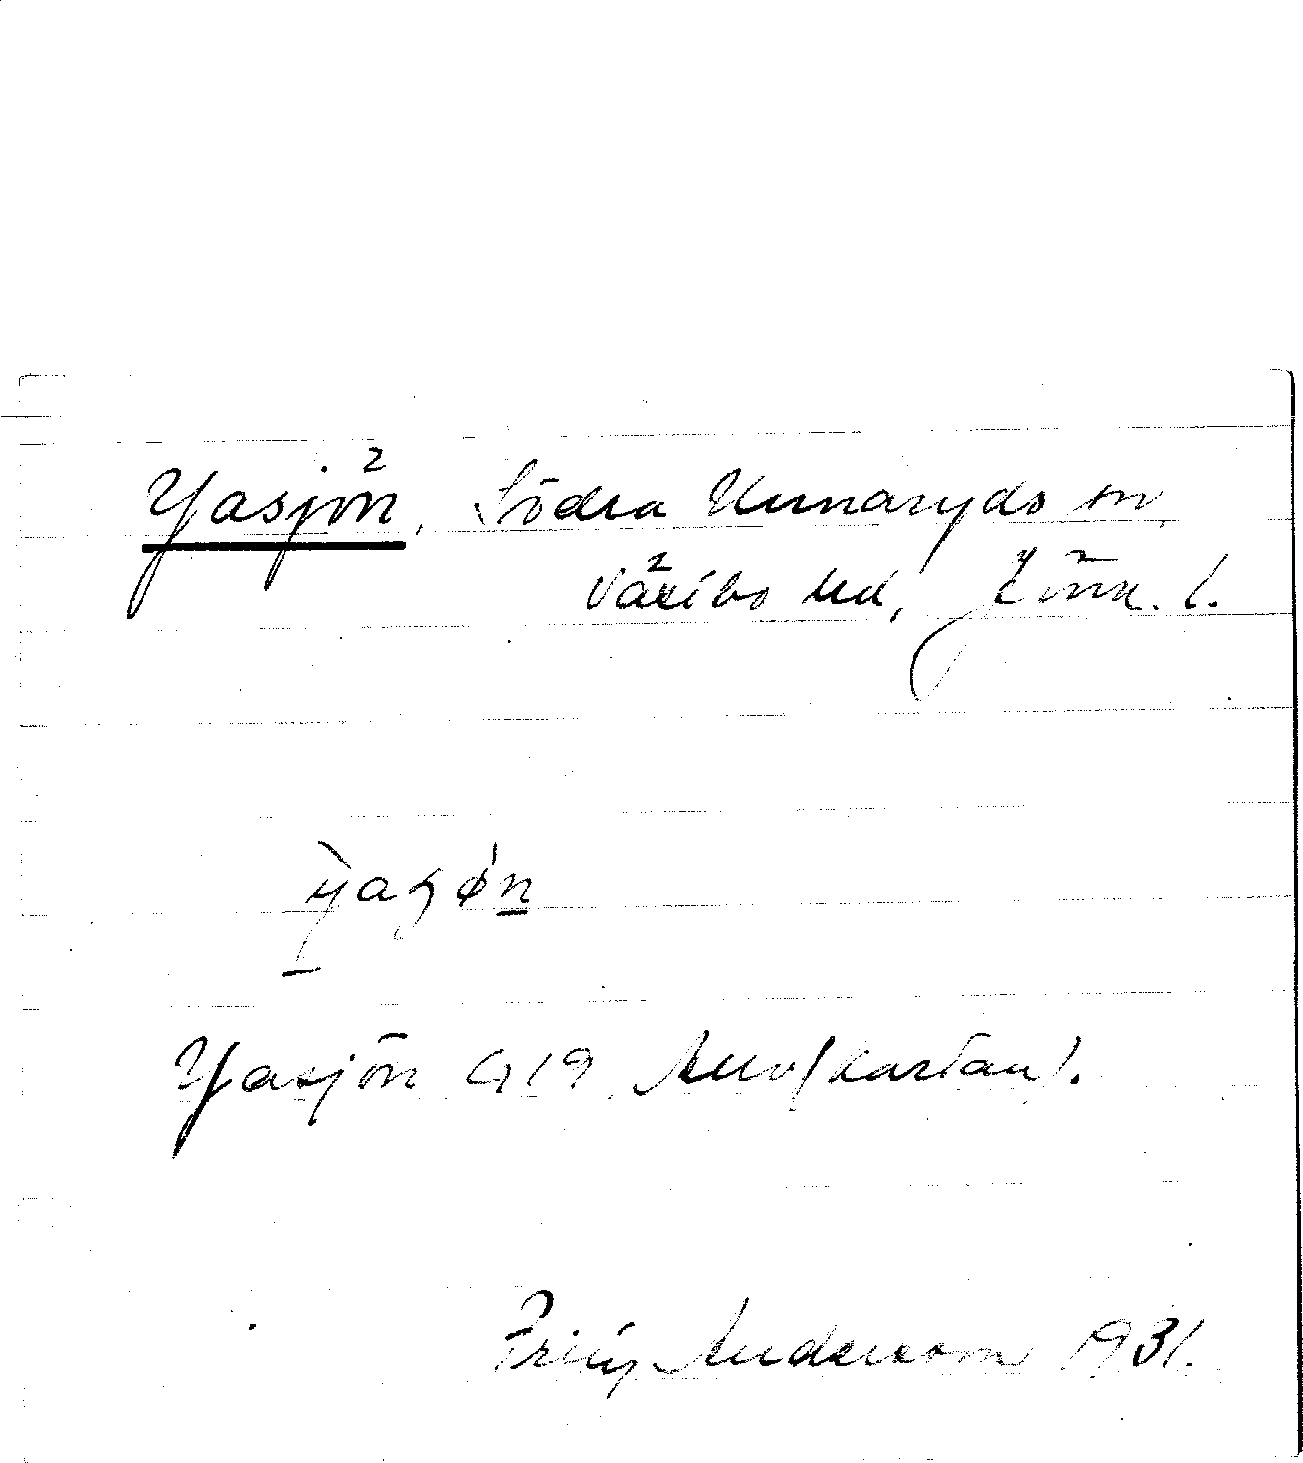 Yasjön, Södra Unnaryds sn,
Västbo hd, Jönk. l.
Yasjön G 19 Auv (kartan).
Fritz Andersson 1931.